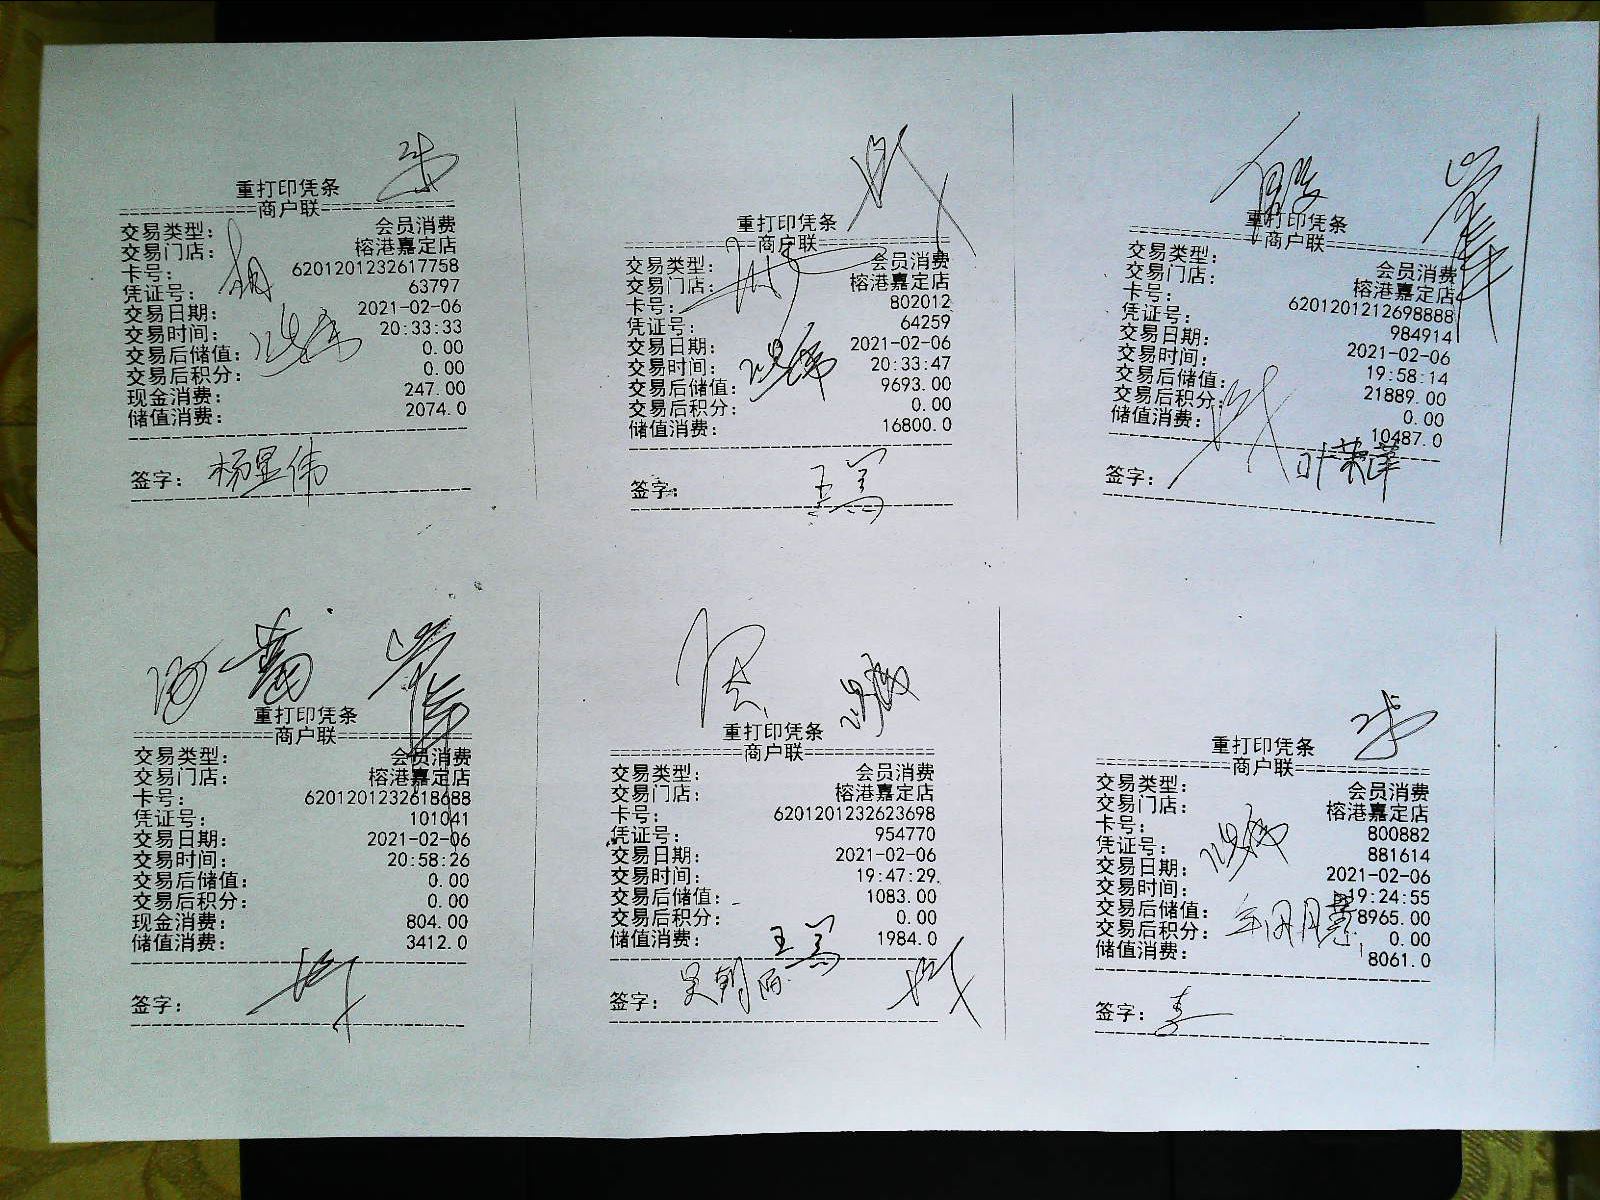 重打印凭条
商户联
交易类型: 会员消费
交易门店: 榕港嘉定店
卡号: 6201201232617758
凭证号: 63797
交易日期: 2021-02-06
交易时间: 20:33:33
交易后储值: 0.00
交易后积分: 0.00
现金消费: 247.00
储值消费: 2074.0
签字: 杨显伟
重打印凭条
商户联
交易类型: 会员消费
交易门店: 榕港嘉定店
卡号: 802012
凭证号: 64259
交易日期: 2021-02-06
交易时间: 20:33:47
交易后储值: 9693.00
交易后积分: 0.00
储值消费: 16800.0
签字: 王
重打印凭条
商户联
交易类型: 会员消费
交易门店: 榕港嘉定店
卡号: 6201201212698888
凭证号: 984914
交易日期: 2021-02-06
交易时间: 19:58:14
交易后储值: 21889.00
交易后积分: 0.00
储值消费: 10487.0
签字: 叶荣
重打印凭条
商户联
交易类型: 会员消费
交易门店: 榕港嘉定店
卡号: 6201201232618688
凭证号: 101041
交易日期: 2021-02-06
交易时间: 20:58:26
交易后储值: 0.00
交易后积分: 0.00
现金消费: 804.00
储值消费: 3412.0
签字:
重打印凭条
商户联
交易类型: 会员消费
交易门店: 榕港嘉定店
卡号: 6201201232623698
凭证号: 954770
交易日期: 2021-02-06
交易时间: 19:47:29
交易后储值: 1083.00
交易后积分: 0.00
储值消费: 1984.0
王
签字: 吴朝
重打印凭条
商户联
交易类型: 会员消费
交易门店: 榕港嘉定店
卡号: 800882
凭证号: 881614
交易日期: 2021-02-06
交易时间: 19:24:55
交易后储值: 8965.00
交易后积分: 0.00
储值消费: 8061.0
签字: